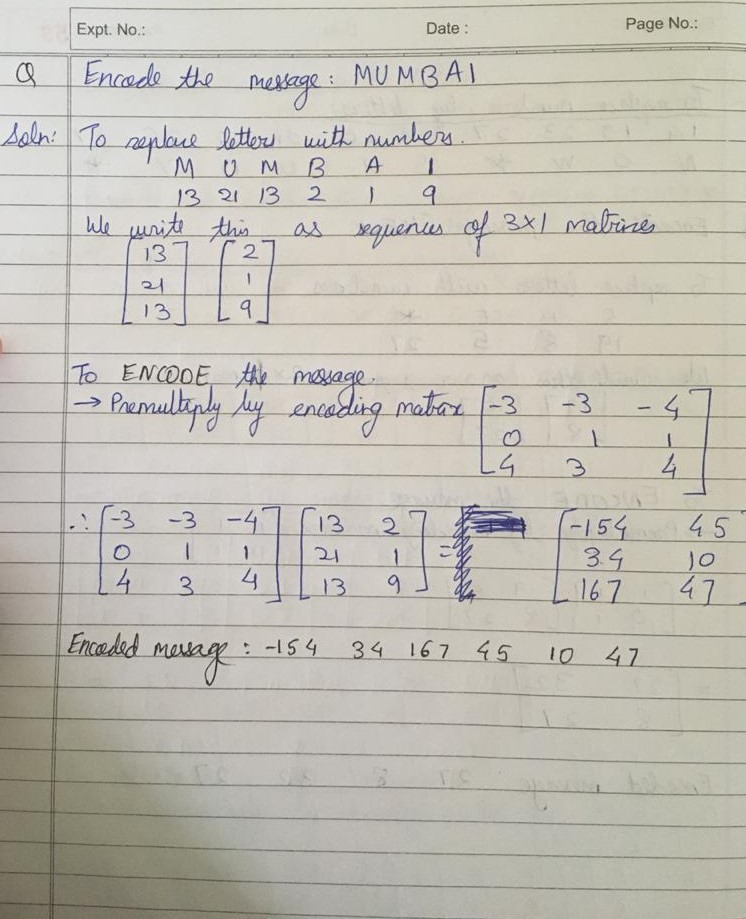 Expt. No.: Date : Page No.:
Q Encode the message: MUMBAI
Soln: To replace letters with numbers.
M U M B A I
13 21 13 2 1 9
We write this as sequences of 3x1 matrices
[13 [2
21 1
13] 9]
To ENCODE the message.
→ Premultiply by encoding matrix [-3 -3 -4
0 1 1
4 3 4]
∴ [-3 -3 -4] [13 2] = [-154 45
0 1 1 21 1 34 10
4 3 4 13 9 167 47]
Encoded message : -154 34 167 45 10 47